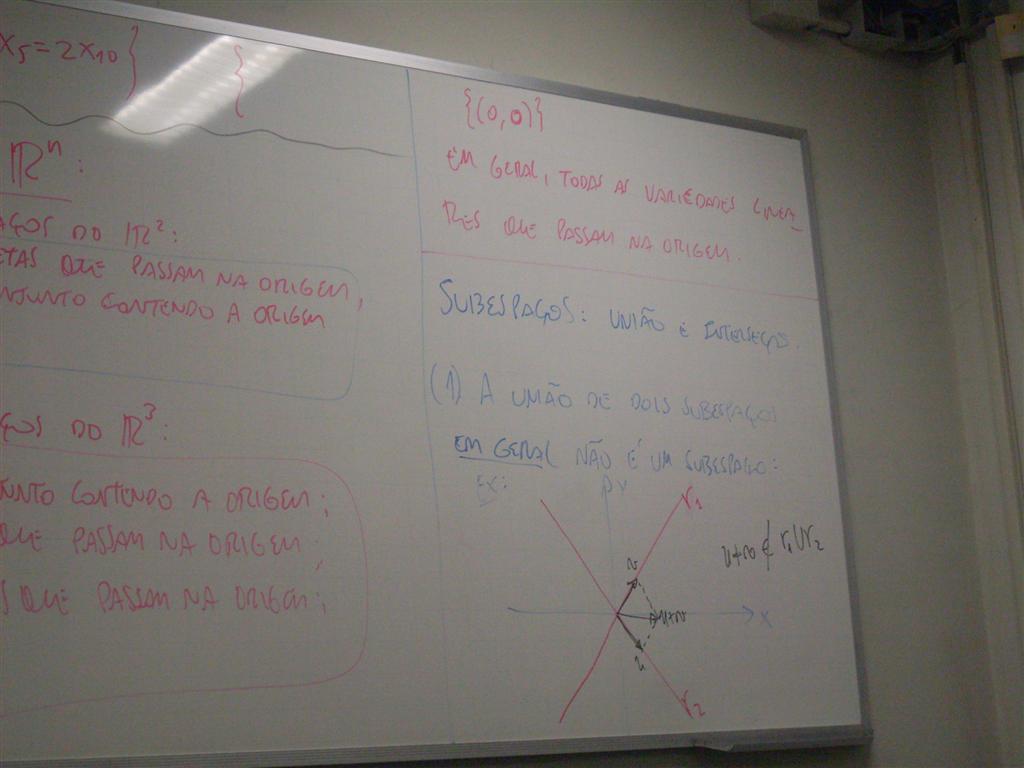 X₅ = 2X₁₀ }
{
ℝⁿ:
AÇOS DO ℝ²:
ETAS QUE PASSAM NA ORIGEM,
NJUNTO CONTENDO A ORIGEM
ÇOS DO ℝ³:
JUNTO CONTENDO A ORIGEM;
QUE PASSAM NA ORIGEM;
S QUE PASSAM NA ORIGEM;
{(0,0)}
EM GERAL, TODAS AS VARIEDADES LINEA-
RES QUE PASSAM NA ORIGEM.
SUBESPAÇOS: UNIÃO E INTERSEÇÃO.
(1) A UNIÃO DE DOIS SUBESPAÇOS
EM GERAL NÃO É UM SUBESPAÇO:
EX:
Y
r₁
u+v ∉ r₁∪r₂
u+v
X
r₂